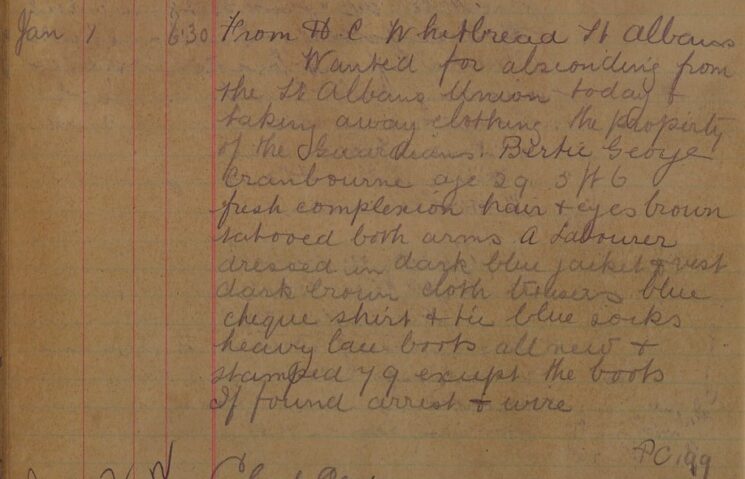 Jan 7 6.30 From D C Whitbread St Albans
Wanted for absconding from
the St Albans Union today &
taking away clothing the property
of the Guardians. Bertie George
Cranbourne age 29 5 ft 6
fresh complexion hair & eyes brown
tatooed both arms A Labourer
dressed in dark blue jacket & vest
dark brown cloth trousers blue
cheque shirt & tie blue socks
heavy lace boots all new &
stamped 79 except the boots
If found arrest & wire
PC 199